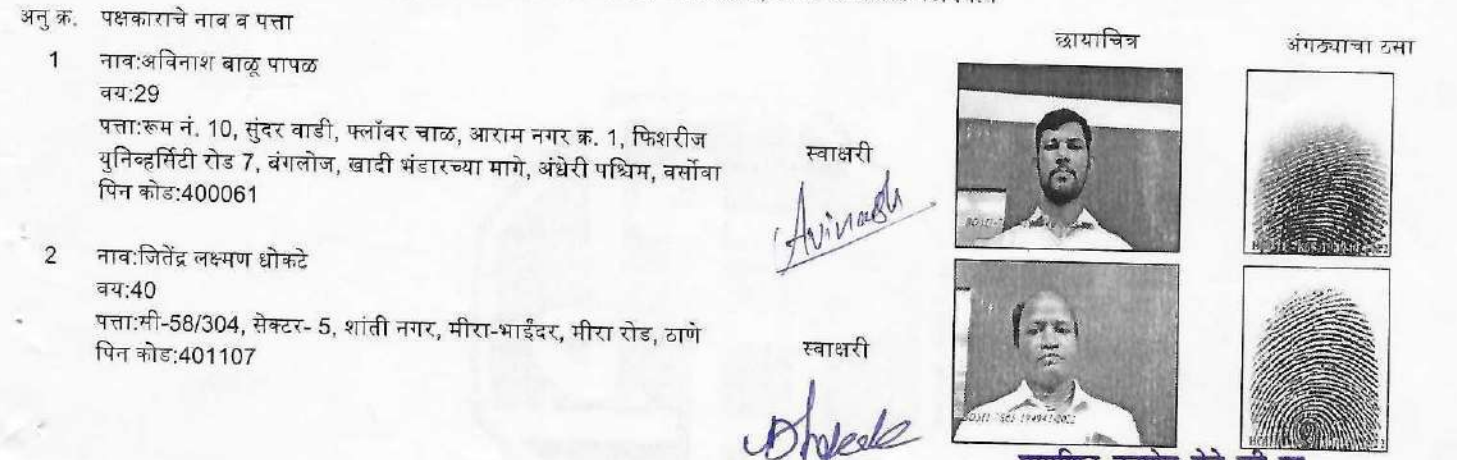 अनु क्र. पक्षकाराचे नाव व पत्ता
छायाचित्र
अंगठ्याचा ठसा
1 नाव:अविनाश बाळू पापळ
वय:29
पत्ता:रूम नं. 10, सुंदर वाडी, फ्लॉवर चाळ, आराम नगर क्र. 1, फिशरीज
युनिव्हर्सिटी रोड 7, बंगलोज, खादी भंडारच्या मागे, अंधेरी पश्चिम, वर्सोवा
पिन कोड:400061
स्वाक्षरी
Avinash
2 नाव:जितेंद्र लक्ष्मण धोकटे
वय:40
पत्ता:सी-58/304, सेक्टर- 5, शांती नगर, मीरा-भाईंदर, मीरा रोड, ठाणे
पिन कोड:401107
स्वाक्षरी